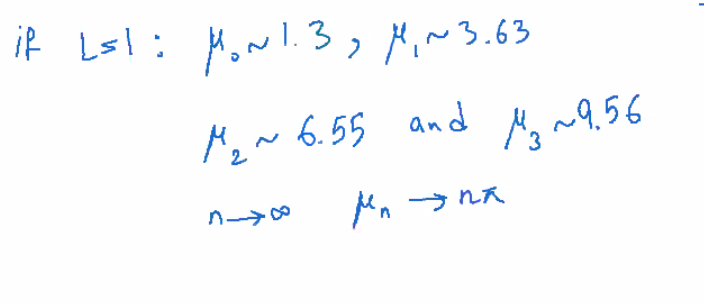 if L=1 : μ₀ ~ 1.3 , μ₁ ~ 3.63
μ₂ ~ 6.55 and μ₃ ~ 9.56
n → ∞ μₙ → nπ